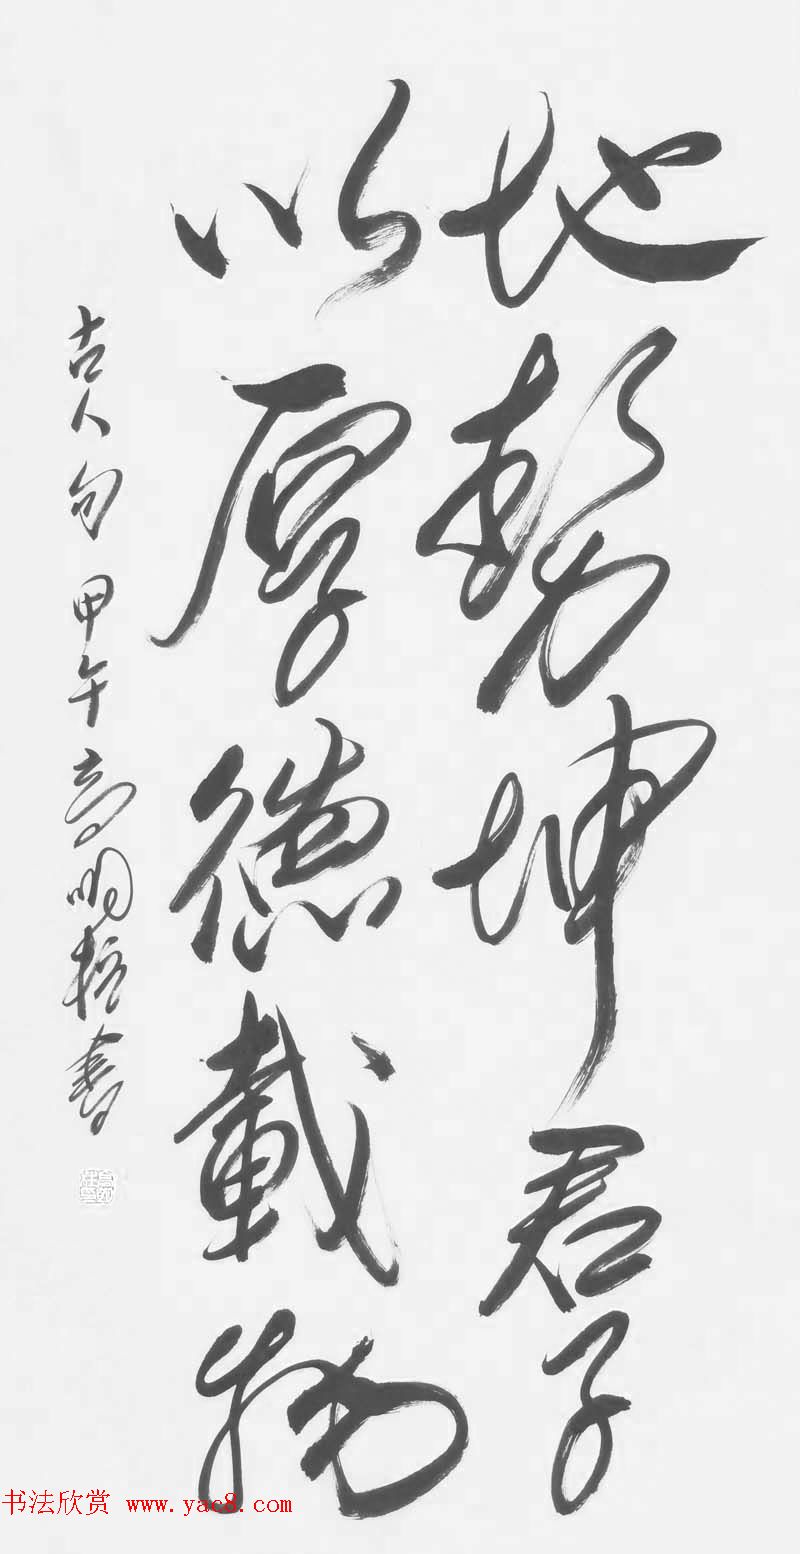 地勢坤君子
以厚德載物
古人句 甲午高明柱書
书法欣赏 www.yac8.com